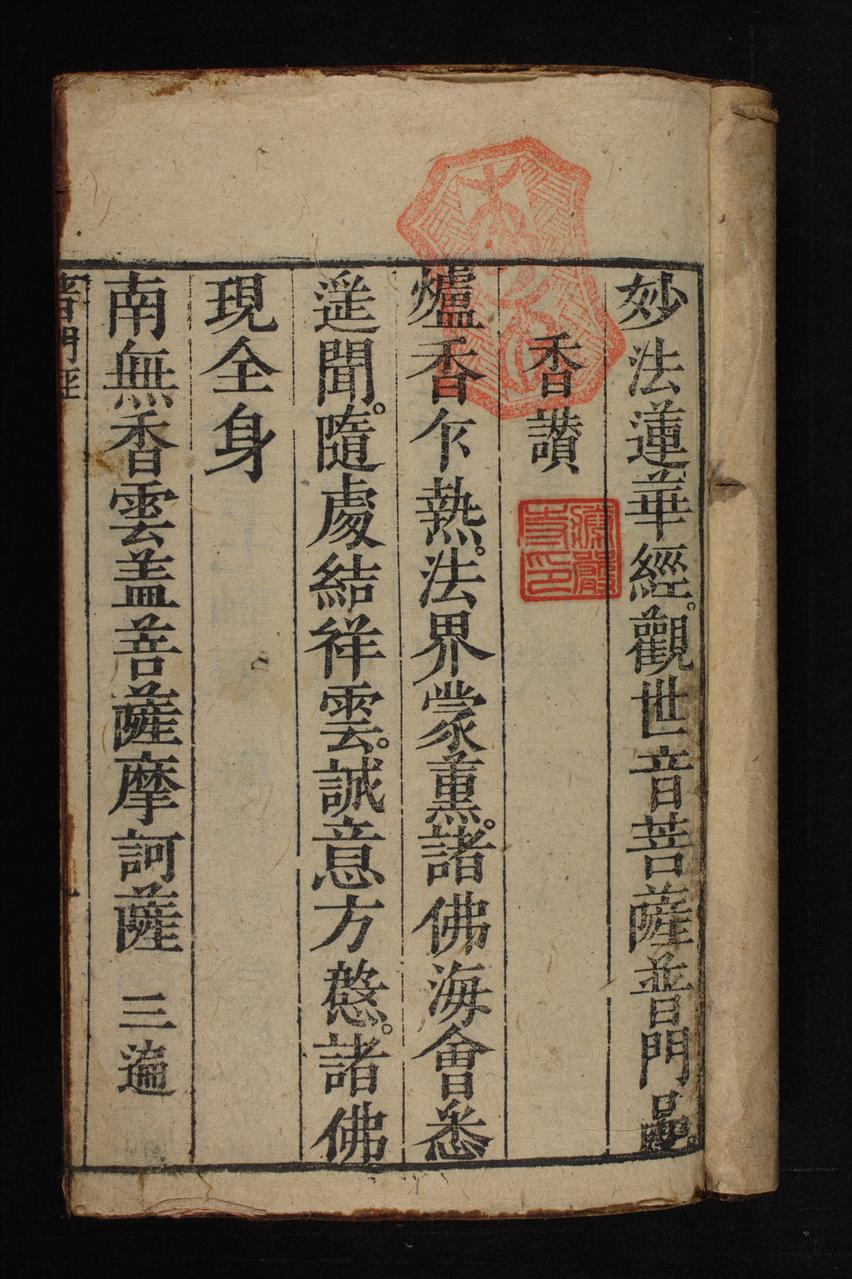 妙法蓮華經。觀世音菩薩普門品
香讚
爐香乍熱。法界蒙熏。諸佛海會悉
遥聞。隨處結祥雲。誠意方慇。諸佛
現全身
南無香雲盖菩薩摩訶薩 三遍
普門經